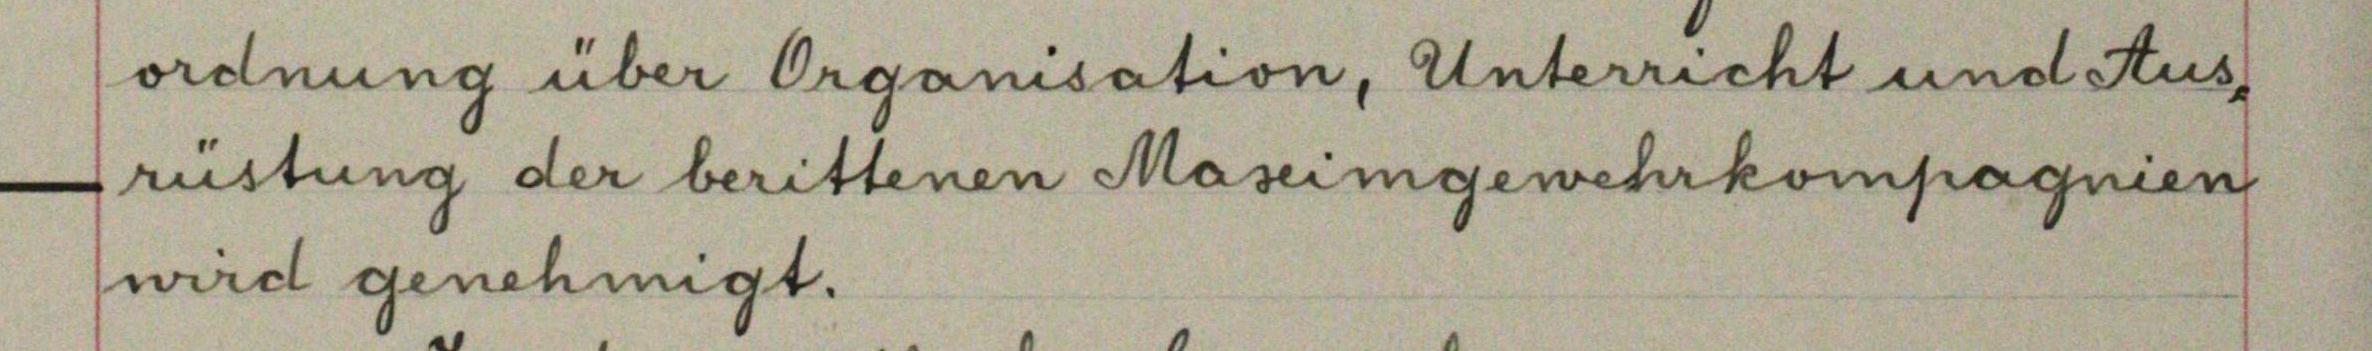 ordnung über Organisation, Unterricht und Aus-
rüstung der berittenen Maximgewehrkompagnien
wird genehmigt.